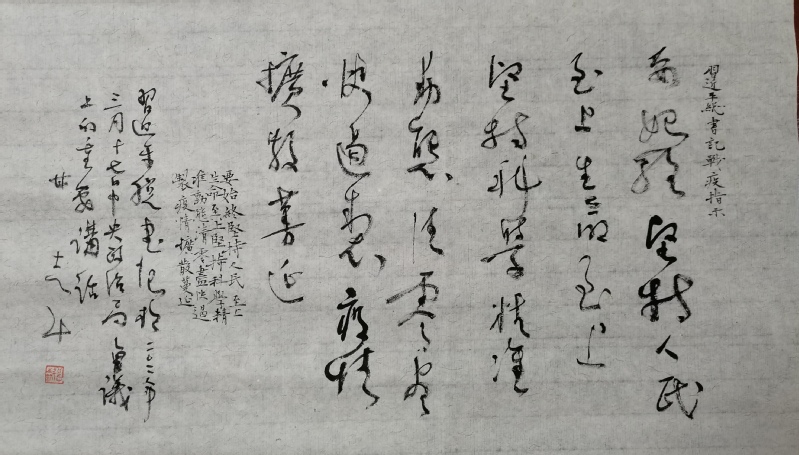 習近平總書記戰疫指示
要始終堅持人民
至上生命至上
堅持科學精准
動態清零盡
快遏制疫情
擴散蔓延
要始終堅持人民至上
生命至上堅持科學精
准動態清零盡快遏
製疫情擴散蔓延
習近平總書記於二〇二二年
三月十七日中央政治局會議
上的重要講話